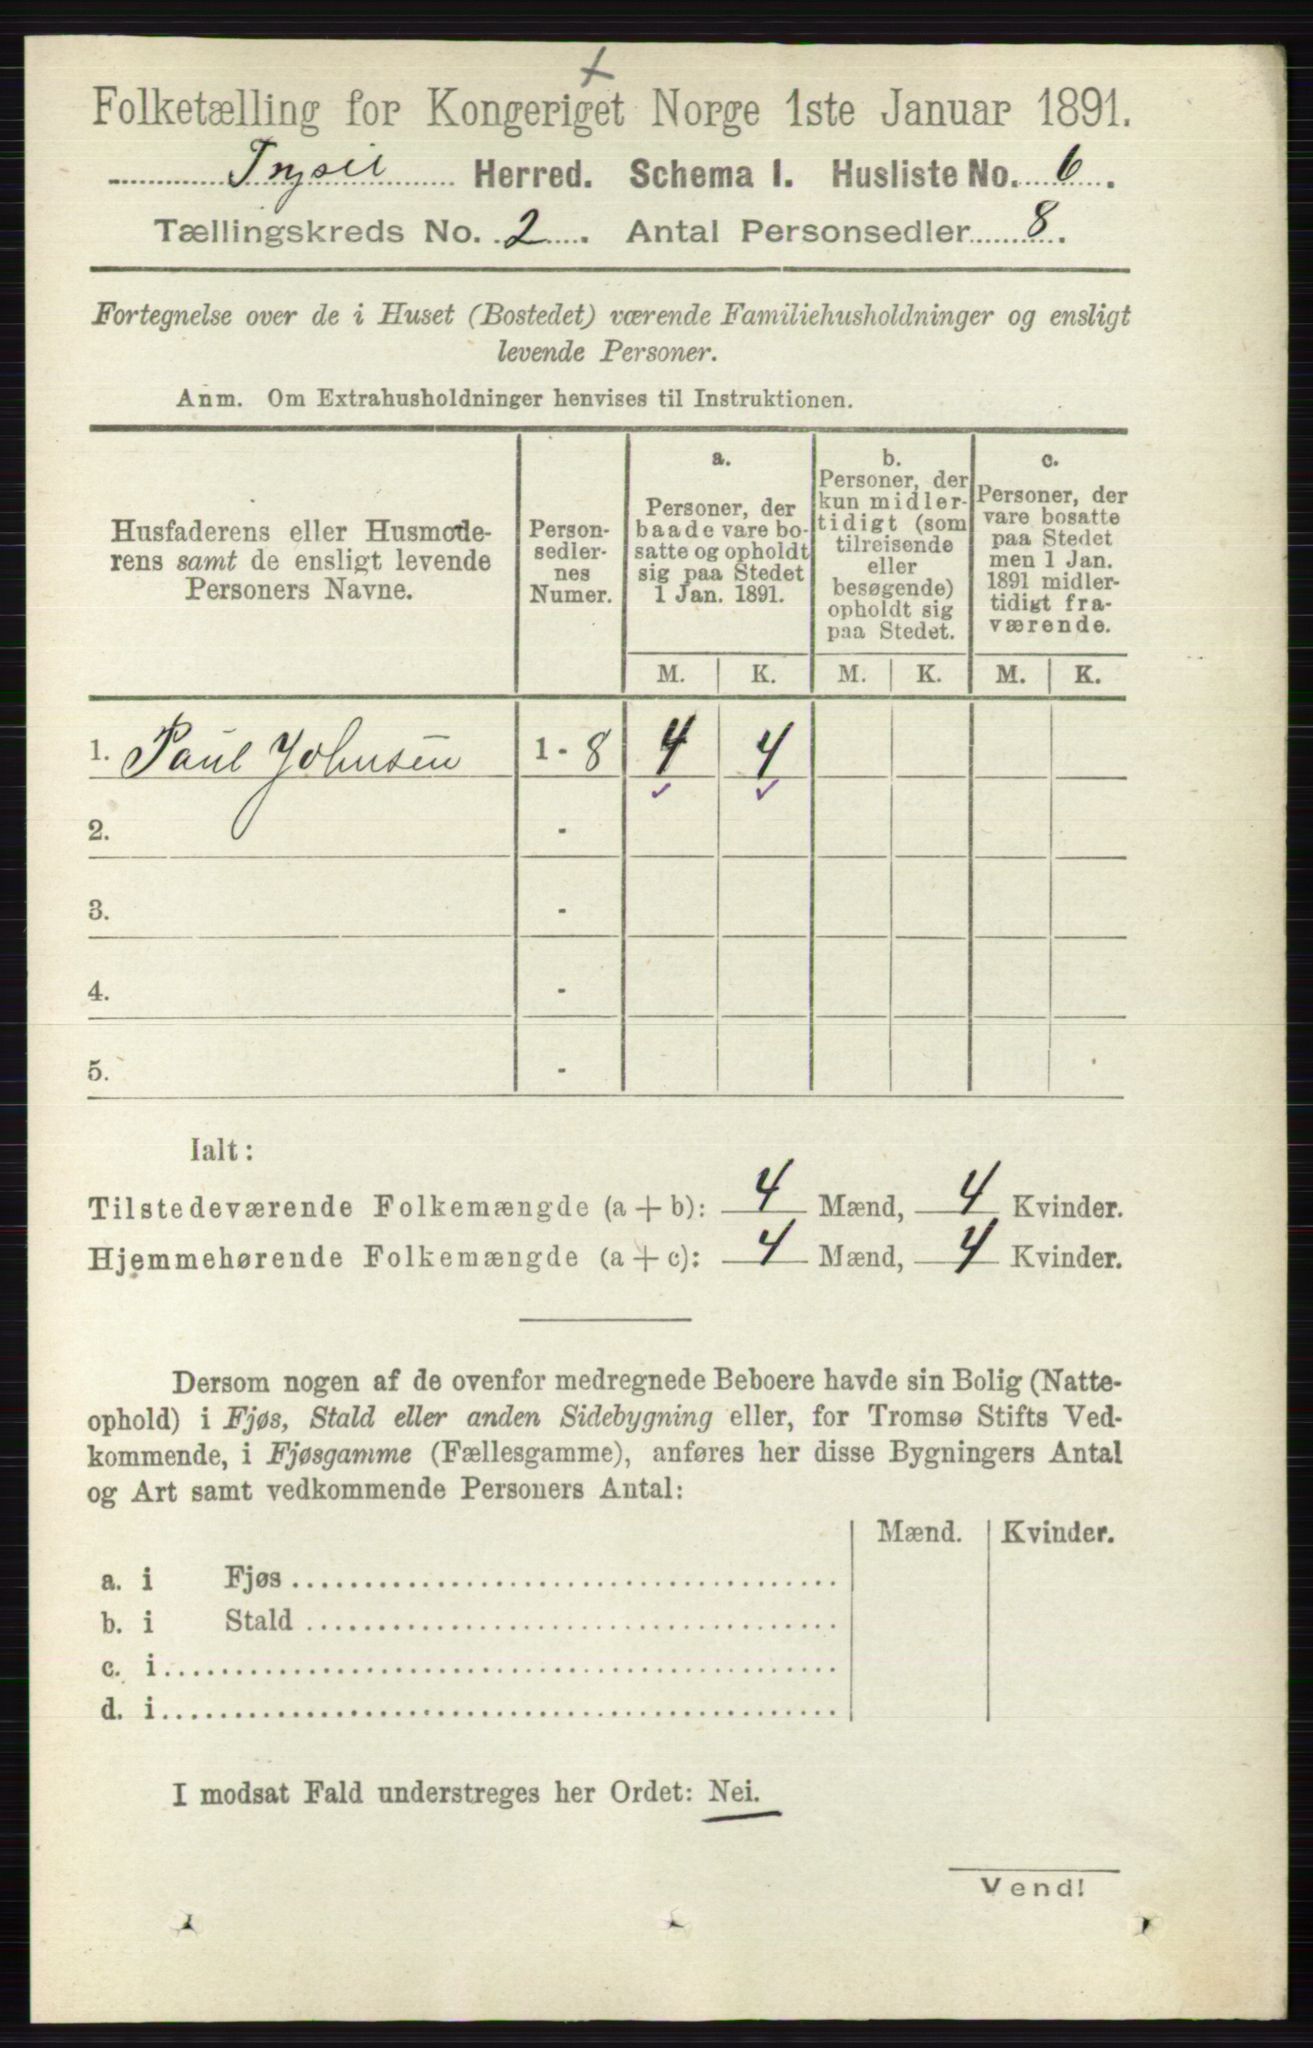 Folketælling for Kongeriget Norge 1ste Januar 1891.
Trysil Herred. Schema I. Husliste No. 6.
Tællingskreds No. 2. Antal Personsedler 8.
Fortegnelse over de i Huset (Bostedet) værende Familiehusholdninger og ensligt
levende Personer.
Anm. Om Extrahusholdninger henvises til Instruktionen.
Husfaderens eller Husmode-
rens samt de ensligt levende
Personers Navne.
Person-
sedler-
nes
Numer.
a.
Personer, der
baade vare bo-
satte og opholdt
sig paa Stedet
1 Jan. 1891.
b.
Personer, der
kun midler-
tidigt (som
tilreisende
eller
besøgende)
opholdt sig
paa Stedet.
c.
Personer, der
vare bosatte
paa Stedet
men 1 Jan.
1891 midler-
tidigt fra-
værende.
M. K. M. K. M. K.
1. Paul Johnsen 1 - 8 4 4
2. -
3. -
4. -
5. -
Ialt:
Tilstedeværende Folkemængde (a + b): 4 Mænd, 4 Kvinder.
Hjemmehørende Folkemængde (a + c): 4 Mænd, 4 Kvinder.
Dersom nogen af de ovenfor medregnede Beboere havde sin Bolig (Natte-
ophold) i Fjøs, Stald eller anden Sidebygning eller, for Tromsø Stifts Ved-
kommende, i Fjøsgamme (Fællesgamme), anføres her disse Bygningers Antal
og Art samt vedkommende Personers Antal:
Mænd. Kvinder.
a. i Fjøs
b. i Stald
c. i
d. i
I modsat Fald understreges her Ordet: Nei.
Vend!